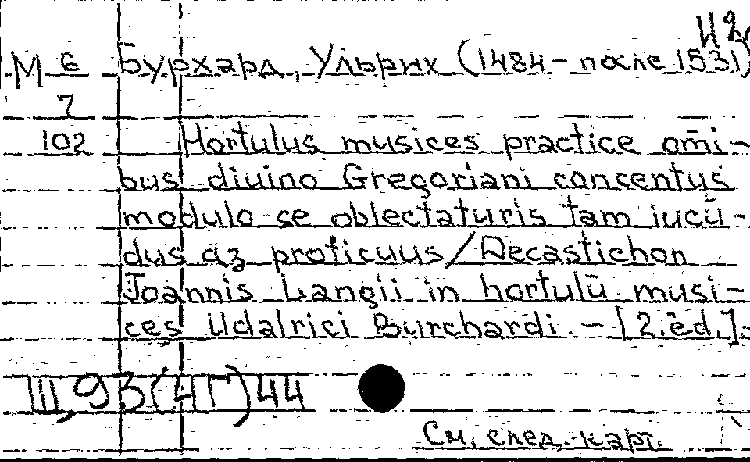 42
М 6 Бурхард, Ульрих (1484 - после 1531)
7
102 Hortulus musices practice om̄i-
bus diuino Gregoriani concentus
modulo se oblectaturis tam iucū-
dus az proficuus/Decastichon
Joannis Langii in hortulū musi-
ces Udalrici Burchardi. - [2. ed.]
Ш,93(4Г)44
См. след. карт.